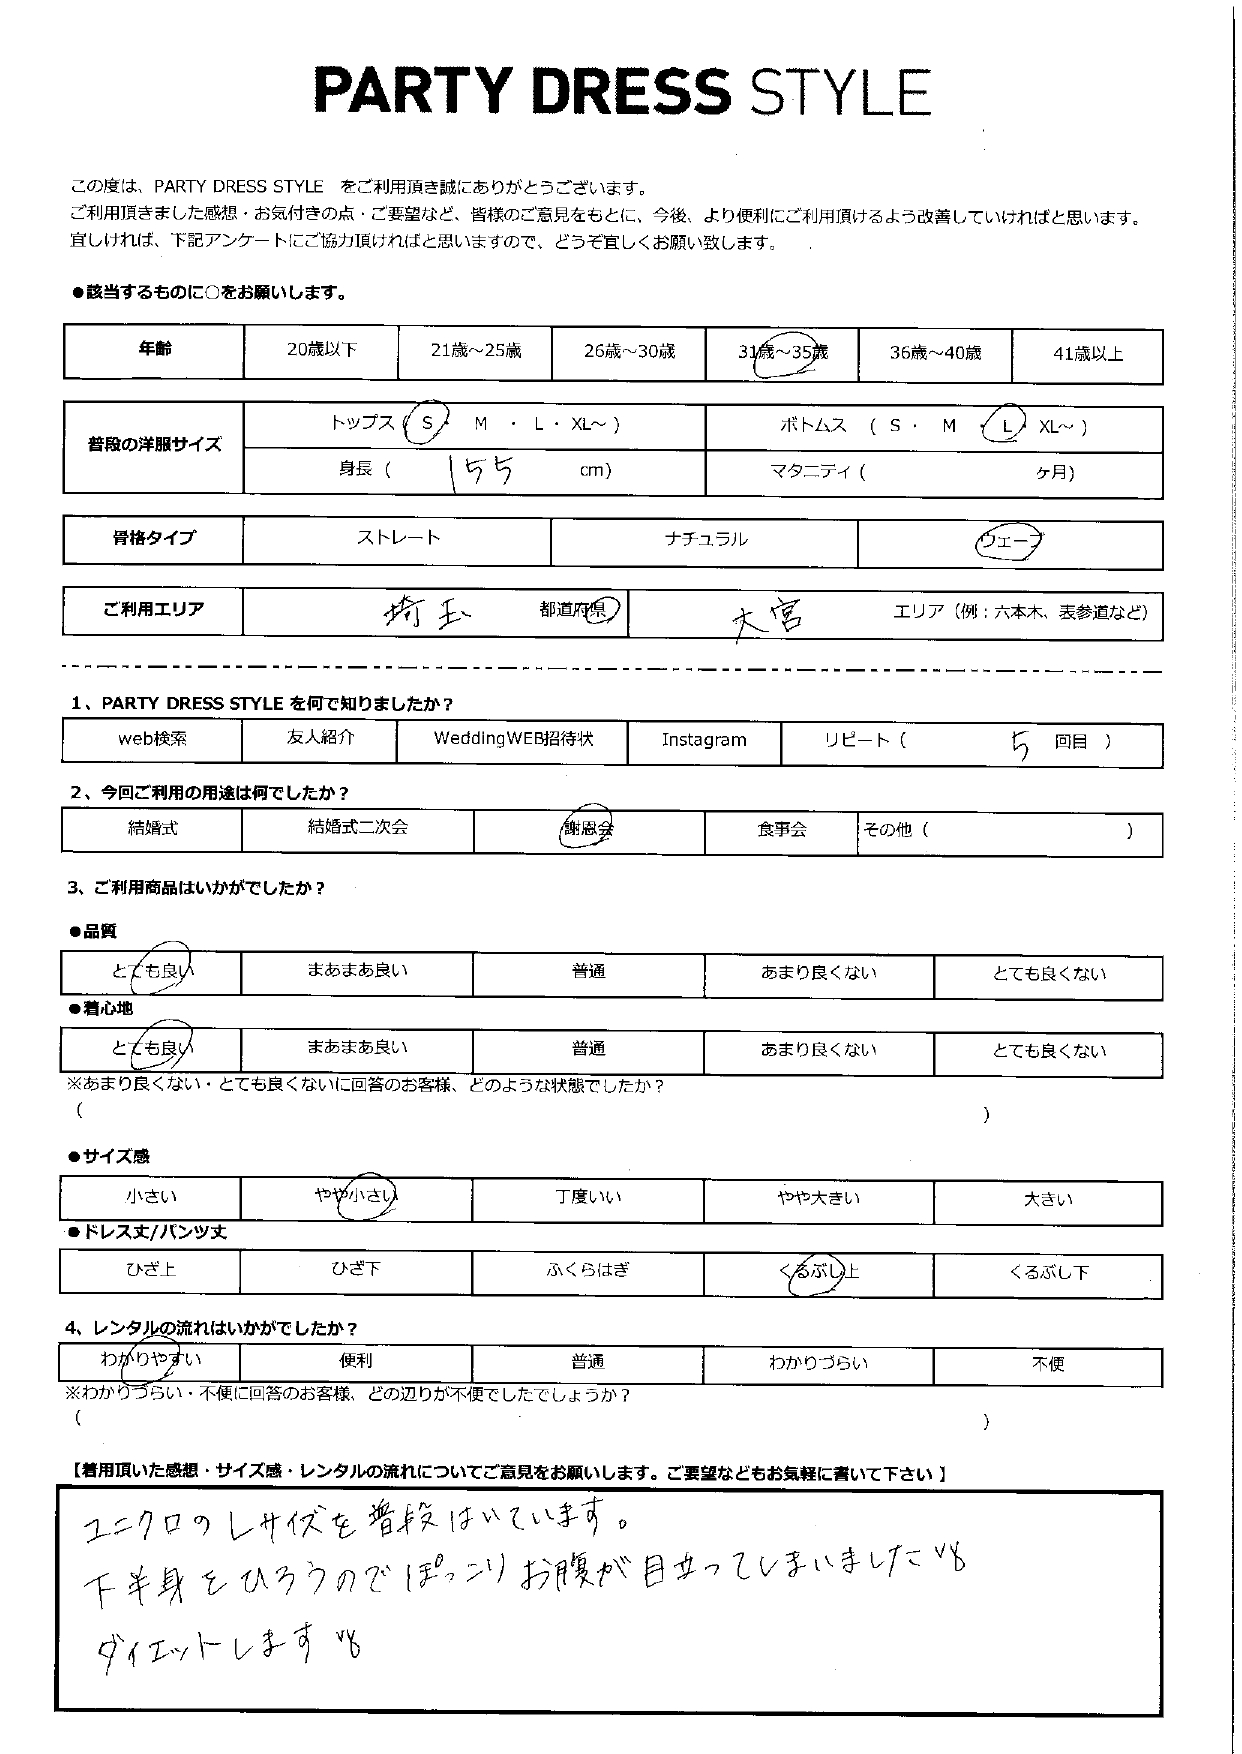 PARTY DRESS STYLE
この度は、PARTY DRESS STYLE をご利用頂き誠にありがとうございます。
ご利用頂きました感想・お気付きの点・ご要望など、皆様のご意見をもとに、今後、より便利にご利用頂けるよう改善していければと思います。
宜しければ、下記アンケートにご協力頂ければと思いますので、どうぞ宜しくお願い致します。
●該当するものに○をお願いします。
年齢 20歳以下 21歳～25歳 26歳～30歳 31歳～35歳 36歳～40歳 41歳以上
普段の洋服サイズ
トップス ( S ・ M ・ L ・ XL～ ) ボトムス ( S ・ M ・ L ・ XL～ )
身長 ( 155 cm) マタニティ ( ヶ月)
骨格タイプ ストレート ナチュラル ウェーブ
ご利用エリア 埼玉 都道府県 大宮 エリア（例：六本木、表参道など）
1、PARTY DRESS STYLE を何で知りましたか？
web検索 友人紹介 WeddingWEB招待状 Instagram リピート ( 5 回目 )
2、今回ご利用の用途は何でしたか？
結婚式 結婚式二次会 謝恩会 食事会 その他 ( )
3、ご利用商品はいかがでしたか？
●品質
とても良い まあまあ良い 普通 あまり良くない とても良くない
●着心地
とても良い まあまあ良い 普通 あまり良くない とても良くない
※あまり良くない・とても良くないに回答のお客様、どのような状態でしたか？
( )
●サイズ感
小さい やや小さい 丁度いい やや大きい 大きい
●ドレス丈/パンツ丈
ひざ上 ひざ下 ふくらはぎ くるぶし上 くるぶし下
4、レンタルの流れはいかがでしたか？
わかりやすい 便利 普通 わかりづらい 不便
※わかりづらい・不便に回答のお客様、どの辺りが不便でしたでしょうか？
( )
【着用頂いた感想・サイズ感・レンタルの流れについてご意見をお願いします。ご要望などもお気軽に書いて下さい】
ユニクロのLサイズを普段はいています。
下半身をひろうのでぽっこりお腹が目立ってしまいました
ダイエットします